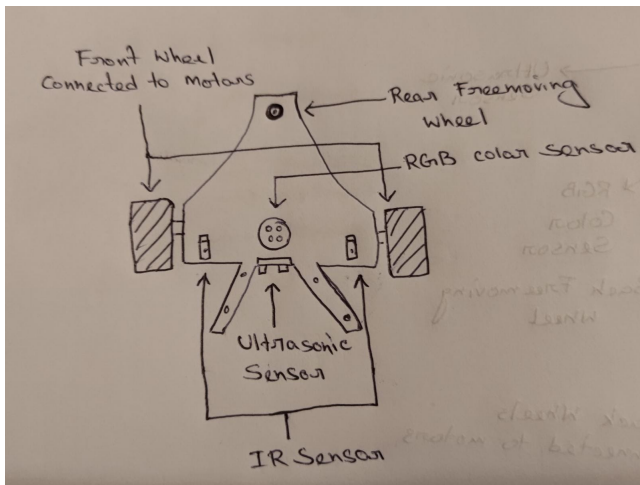 Front Wheel
Connected to Motors
Rear Freemoving
Wheel
RGB color sensor
Ultrasonic
Sensor
IR Sensor